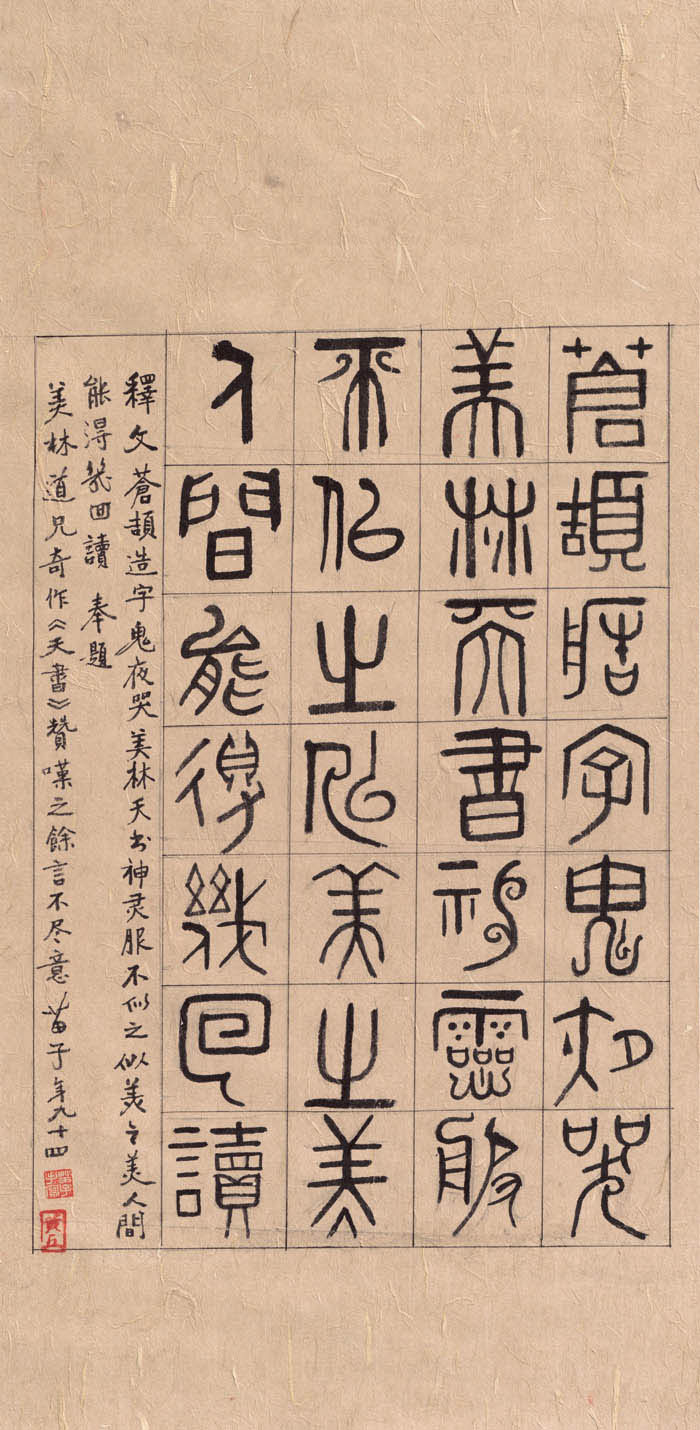 蒼頡造字鬼夜哭
美林天書神靈服
不似之似美之美
人間能得幾回讀
釋文蒼頡造字鬼夜哭美林天书神灵服不似之似美之美人間
能得幾回讀 奉題
美林道兄奇作《天書》贊嘆之餘言不尽意 苗子年九十四